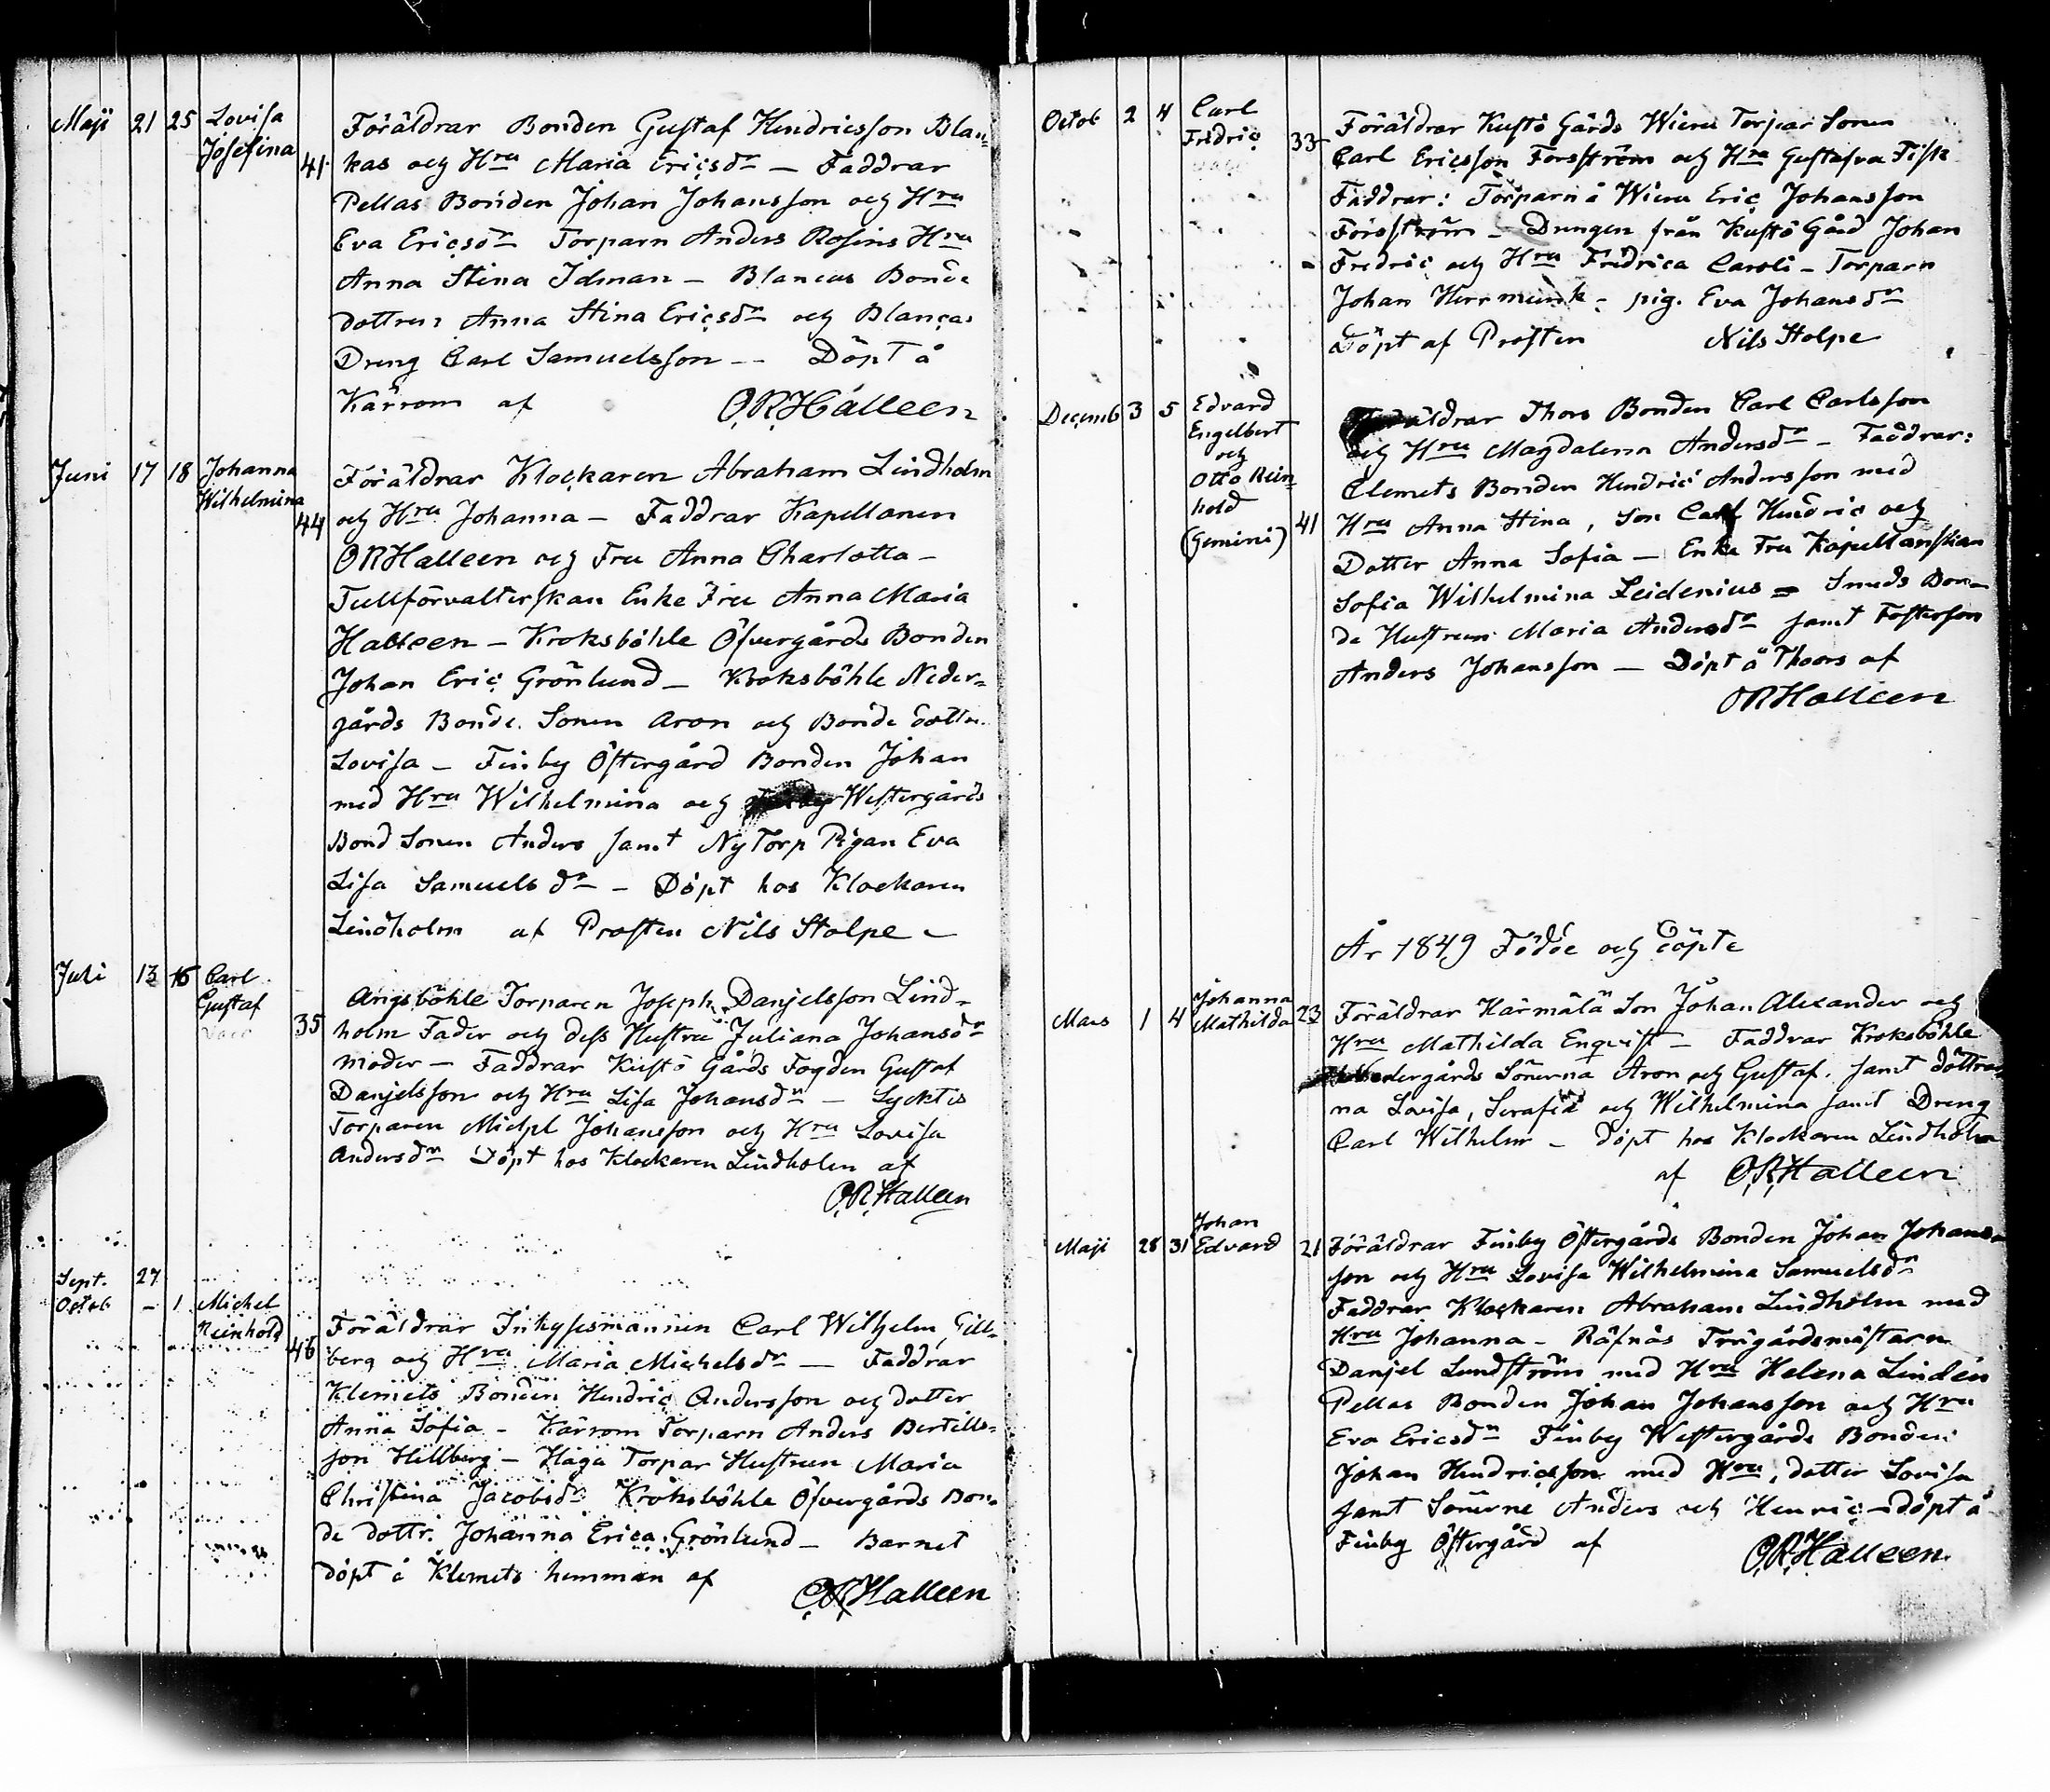 Maji 21 25 Lovisa
Josefina 41
Föräldrar Bonden Gustaf Hendricsson Blan-
kas och Hru Maria Ericsdr — Faddrar
Pellas Bonden Johan Johansson och Hru
Eva Ericsdr Torparn Anders Rosins Hru
Anna Stina Idman — Blancas Bonde
dottren Anna Stina Ericsdr och Blancas
Dreng Carl Samuelsson — Döpt å
Kärrom af O.R.Halleen
Juni 17 18 Johanna
Wilhelmina 44
Föräldrar Klockaren Abraham Lindholm
och Hru Johanna — Faddrar Kapellanen
O R Halleen och Fru Anna Charlotta —
Tullförvalterskan Enke Fru Anna Maria
Halleen — Kroksböhle Öfvergårds Bonden
Johan Eric Grönlund — Kroksböhle Neder-
gårds Bonde Sonen Aron och Bonde dottr.
Lovisa — Finby Östergård Bonden Johan
med Hru Wilhelmina och Westergårds
Bond Sonen Anders samt Nytorp Pigan Eva
Lisa Samuelsdr — Döpt hos Klockaren
Lindholm af Prosten Nils Stolpe —
Juli 13 16 Carl
Gustaf 35
Angsböhle Torparen Joseph Danjelsson Lind-
holm Fader och dess Hustru Juliana Johansdr
moder — Faddrar Kustö Gårds Fogden Gustaf
Danjelsson och Hru Lisa Johansdr — Lycktis
Torparen Michel Johansson och Hru Lovisa
Andersdr Döpt hos Klockaren Lindholm af
O.R.Halleen
Sept. 27
Octob — 1 Michel
Reinhold 46
Föräldrar Inhysesmannen Carl Wilhelm Gill-
berg och Hru Maria Michelsdr — Faddrar
Klemets Bonden Hendric Andersson och dotter
Anna Sofia — Kärrom Torparn Anders Bertills-
son Hillberg — Haga Torpar Hustrun Maria
Christina Jacobsdr Kroksböhle Öfvergårds Bon-
de dottr. Johanna Erica Grönlund — Barnet
döpt å Klemets hemman af O.R.Halleen
Octob 2 4 Carl
Fredric 33
Föräldrar Kustö Gårds Wiera Torpar Sonen
Carl Ericsson Forsström och Hru Gustafva Fisk
Faddrar: Torparn å Wiera Eric Johansson
Forsström — Drengen från Kustö Gård Johan
Fredric och Hru Fredrica Caroli — Torparn
Johan Herrmunk — pig. Eva Johansdr
Döpt af Prosten Nils Stolpe
Decemb 3 5 Edvard
Engelbert
och
Otto Rein-
hold
(Gemini) 41
Föräldrar Thors Bonden Carl Carlsson
och Hru Magdalena Andersdr — Faddrar:
Clemets Bonden Hendric Andersson med
Hru Anna Stina, Son Carl Hendric och
Dotter Anna Sofia — Enke Fru Kapellanskan
Sofia Wilhelmina Leidenius — Smeds Bon-
de Hustrun Maria Andersdr samt Fosterson
Anders Johansson — Döpt å Thors af
O R Halleen
År 1849 Födde och Döpte
Mars 1 4 Johanna
Mathilda 23
Föräldrar Kärmälä Son Johan Alexander och
Hru Mathilda Enqvist — Faddrar Kroksböhle
Nedergårds Sönerna Aron och Gustaf, samt döttrar-
na Lovisa, Serafia och Wilhelmina samt Dreng
Carl Wilhelm — döpt hos Klockaren Lindholm
af O.R.Halleen
Maji 28 31 Johan
Edvard 21
Föräldrar Finby Östergårds Bonden Johan Johans-
son och Hru Lovisa Wilhelmina Samuelsdr
Faddrar Klockaren Abraham Lindholm med
Hru Johanna — Räfnäs Trägårdsmästarn
Danjel Lundström med Hru Helena Lindén
Pellas Bonden Johan Johansson och Hru
Eva Ericsdr Finby Westergårds Bonden
Johan Hendricsson med Hru, dotter Lovisa
samt Sönerne Anders och Henric — döpt å
Finby Östergård af O.R.Halleen.